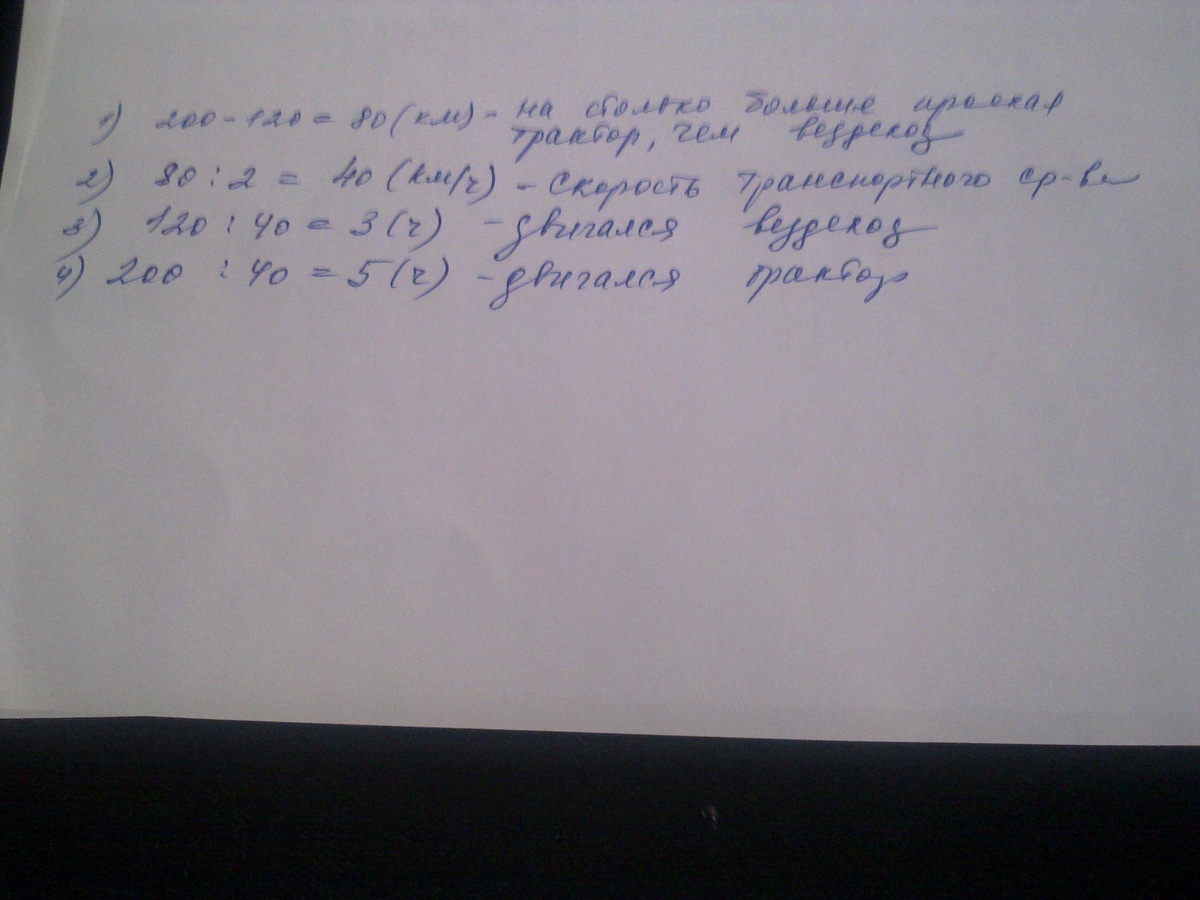 1) 200-120 = 80 (км) - на столько больше проехал
трактор, чем вездеход
2) 80 : 2 = 40 (км/ч) - скорость транспортного ср-ва
3) 120 : 40 = 3 (ч) - двигался вездеход
4) 200 : 40 = 5 (ч) - двигался трактор